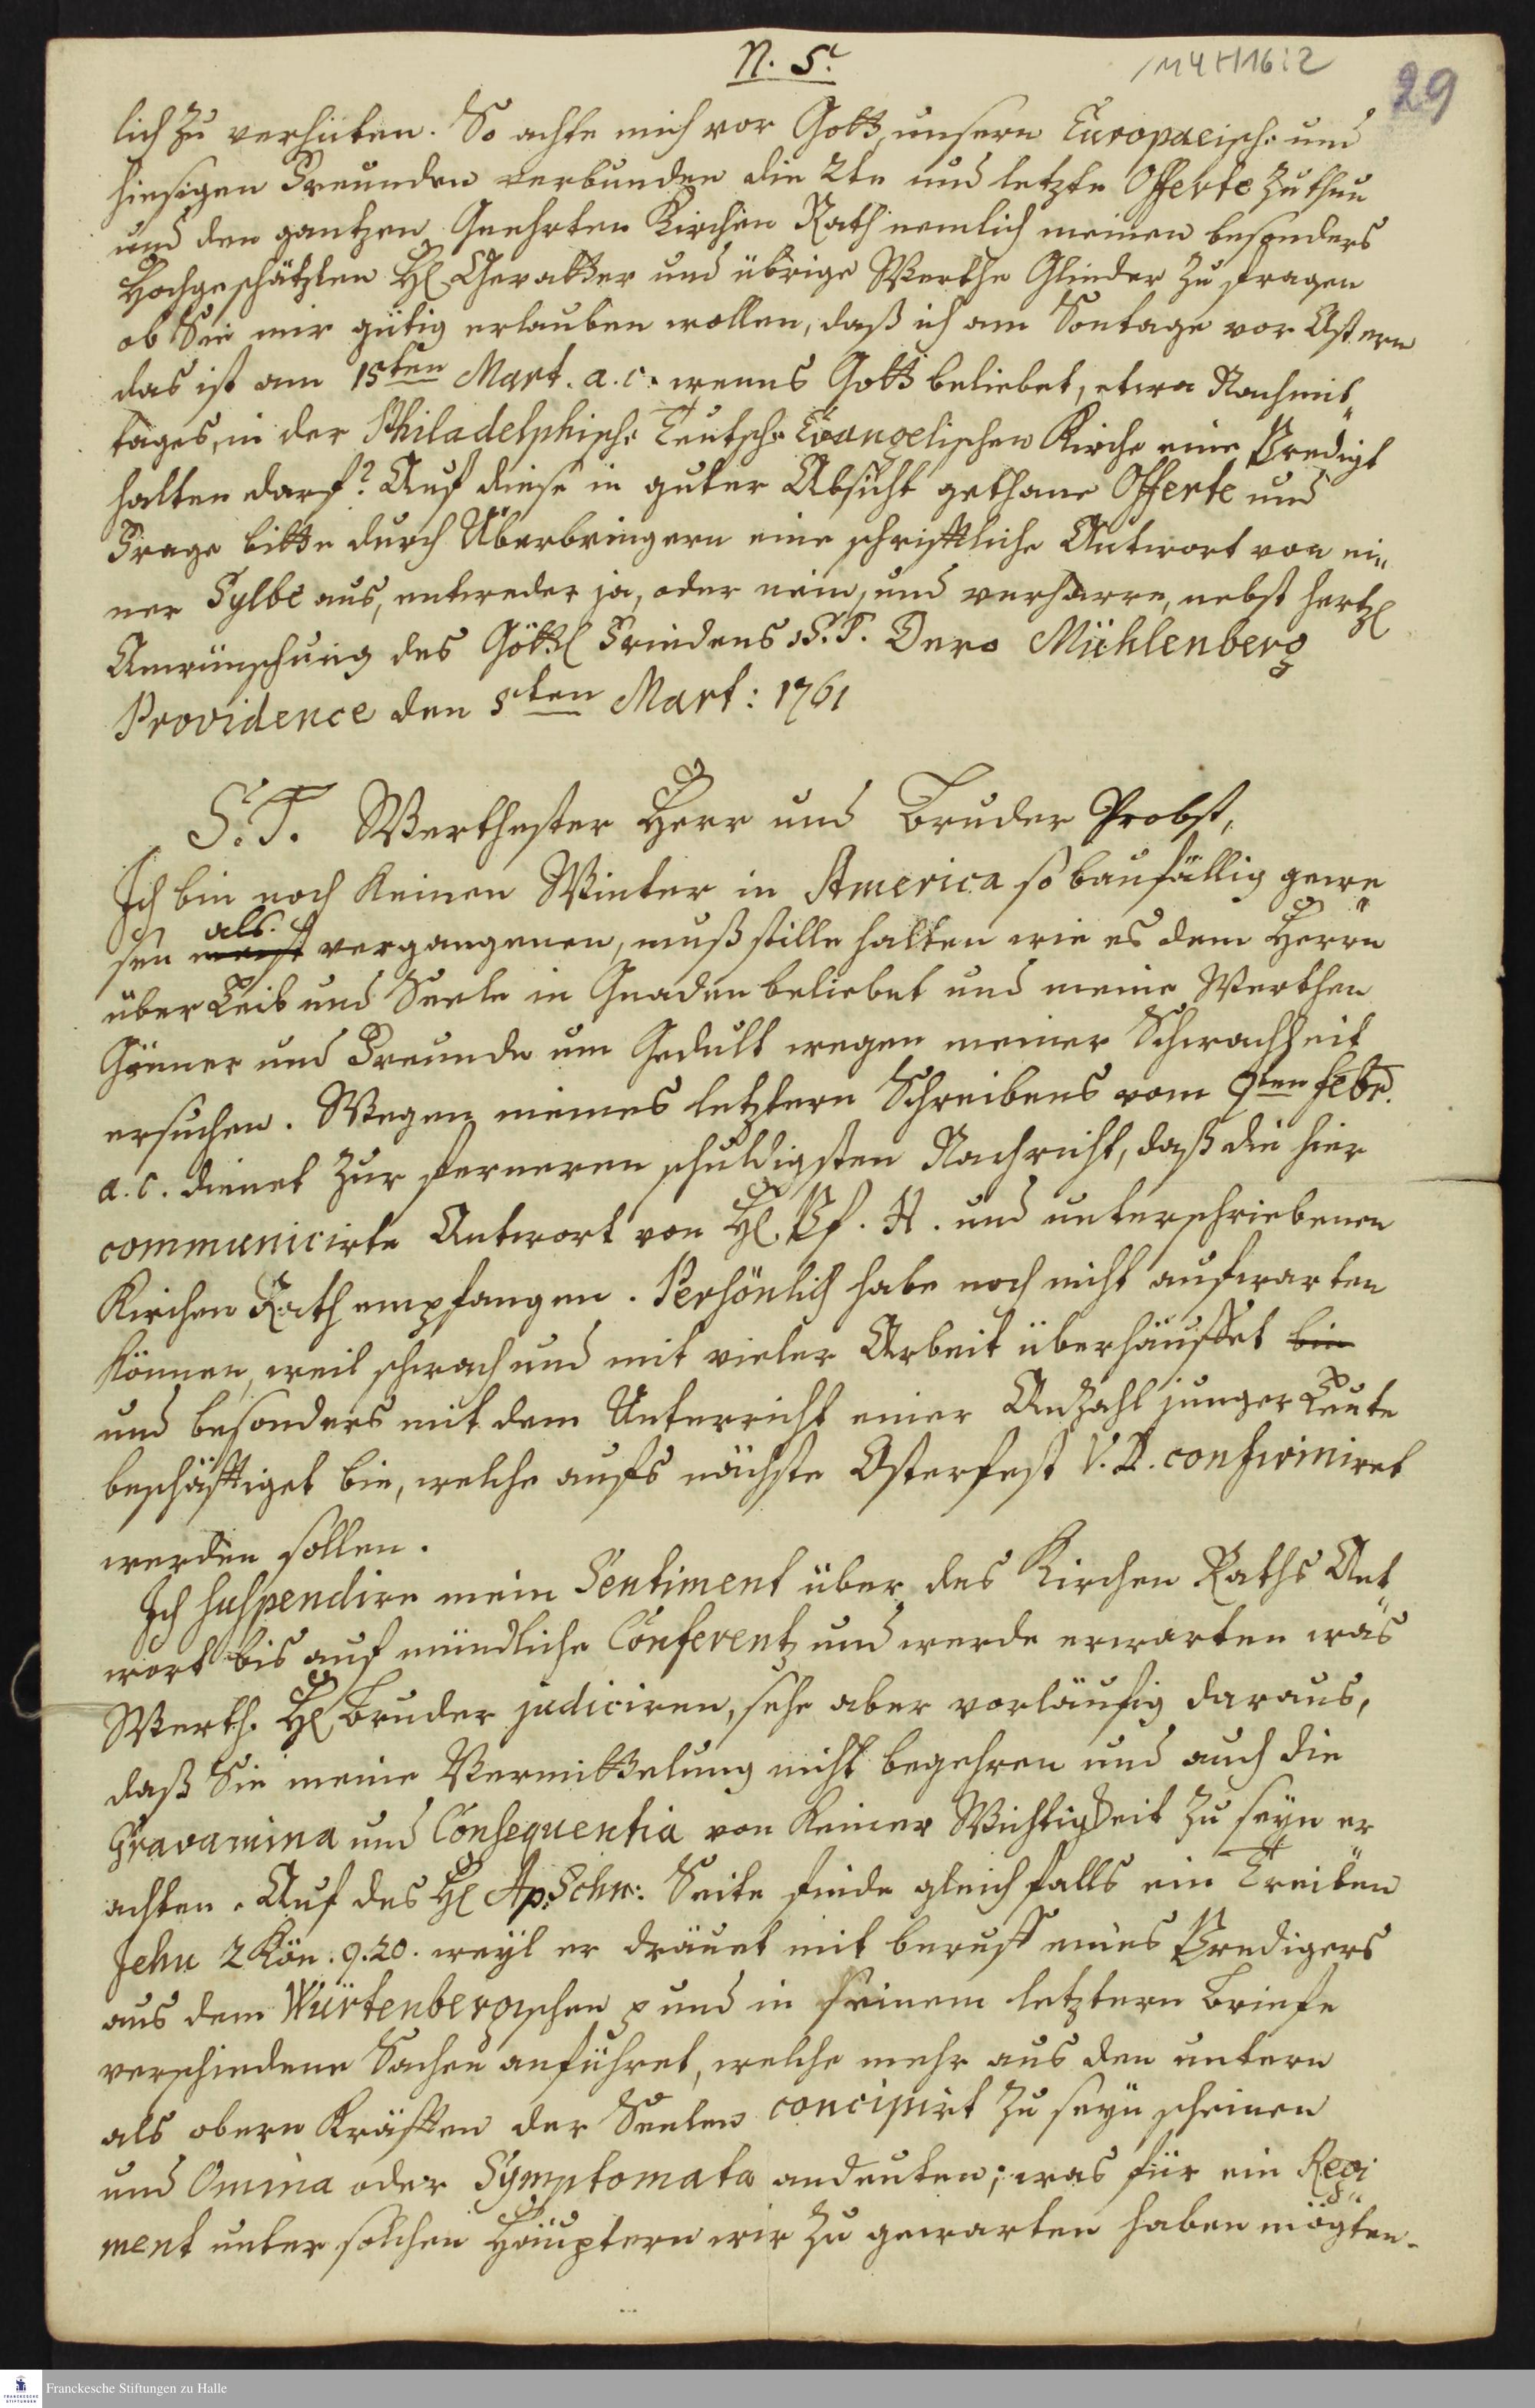 N. 5.
/M 4 H 16 : 2
29
lich zu verhüten. So achte mich vor Gott, unsern Europaeisch: und
hiesigen Freunden verbunden die 2te und letzte Offerte zu thun
und den gantzen Geehrten Kirchen Rath nemlich meinen besonders
Hochgeschätzten H Gevatter und übrige Werthe Glieder zu fragen
ob Sie mir gütig erlauben wollen, daß ich am Sontage vor Ostern
das ist am 15ten Mart. a. c. wenns Gott beliebet, etwa Nachmit„
tages, in der Philadelphisch: Teutsch: Evangelischen Kirche eine Predigt
halten darf? Auf diese in guter Absicht gethane Offerte und
Frage bitte durch Überbringern eine schriftliche Antwort von ei„
ner Sylbe aus, entweder ja, oder nein, und verharre, nebst hertzl
Anwünschung des Göttl Friedens, S. T. Dero Mühlenberg
Providence den 5ten Mart: 1761
S. T. Werthester Herr und Bruder Probst,
Ich bin noch keinen Winter in America so baufällig gewe„
als
sen vergangenen, muß stille halten wie es dem Herrn
über Leib und Seele in Gnaden beliebet und meine Werthen
Gönner und Freunde um Gedult wegen meiner Schwachheit
ersuchen. Wegen meines letztern Schreibens vom 9ten Febr.
a. c. dienet zur ferneren schuldigsten Nachricht, daß die hier
communicirte Antwort von H. Pf. H. und unterschriebenen
Kirchen Rath empfangen. Persönlich habe noch nicht aufwarten
können, weil schwach und mit vieler Arbeit überhäuffet bin
und besonders mit dem Unterricht einer Anzahl junger Leute
beschäftiget bin, welche aufs nächste Osterfest V. D. confirmiret
werden sollen.
Ich suspendire mein Sentiment über des Kirchen Raths Ant„
wort bis auf mündliche Conferentz und werde erwarten was
Werth. H Bruder judiciren, sehe aber vorläufig daraus,
daß Sie meine Vermittelung nicht begehren und auch die
Gravamina und Consequentia von keiner Wichtigkeit zu seyn er„
achten. Auf des H Ap: Schw: Seite finde gleichfalls ein Treiben
Jehu 2 Kön. 9. 20. weyl er dräuet mit beruff eines Predigers
aus dem Würtenbergischen p und in seinem letztern Briefe
verschiedene Sachen anführet, welche mehr aus den untern
als obern Kräfften der Seelen concipirt zu seyn scheinen
und Omina oder Symptomata andeuten; was für ein Regi„
ment unter solchen Häuptern wir zu gewarten haben mögten.
Franckesche Stiftungen zu Halle